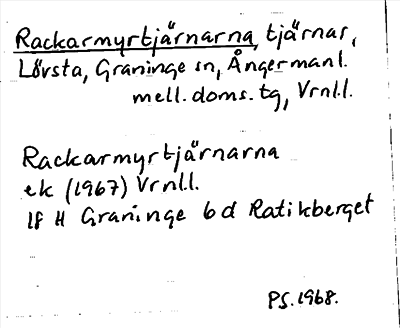 Rackarmyrtjärnarna, tjärnar,
Lövsta, Graninge sn, Ångermanl.
mell. doms. tg, Vrnl.l.
Rackarmyrtjärnarna
ek (1967) Vrnl.l.
18 H Graninge 6 d Ratikberget
PS. 1968.